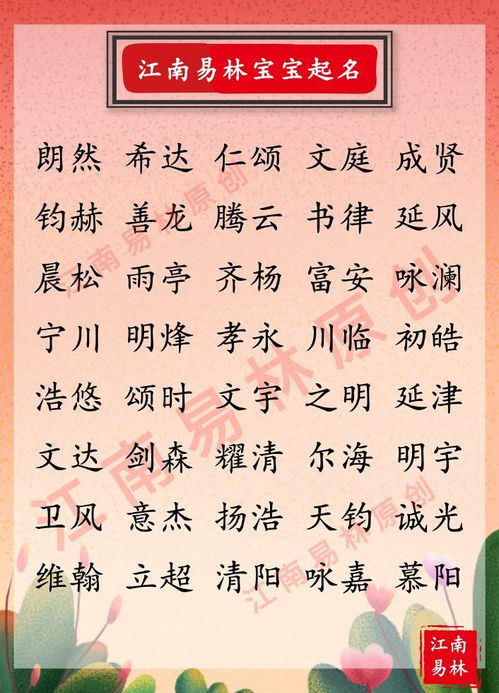 江南易林宝宝起名
朗然 希达 仁颂 文庭 成贤
钧赫 善龙 腾云 书律 延风
晨松 雨亭 齐杨 富安 咏澜
宁川 明烽 孝永 川临 初皓
浩悠 颂时 文宇 之明 延津
文达 剑森 耀清 尔海 明宇
卫风 意杰 扬浩 天钧 诚光
维翰 立超 清阳 咏嘉 慕阳
江南易林原创
江南易林原创
江南易林原创
江南
易林